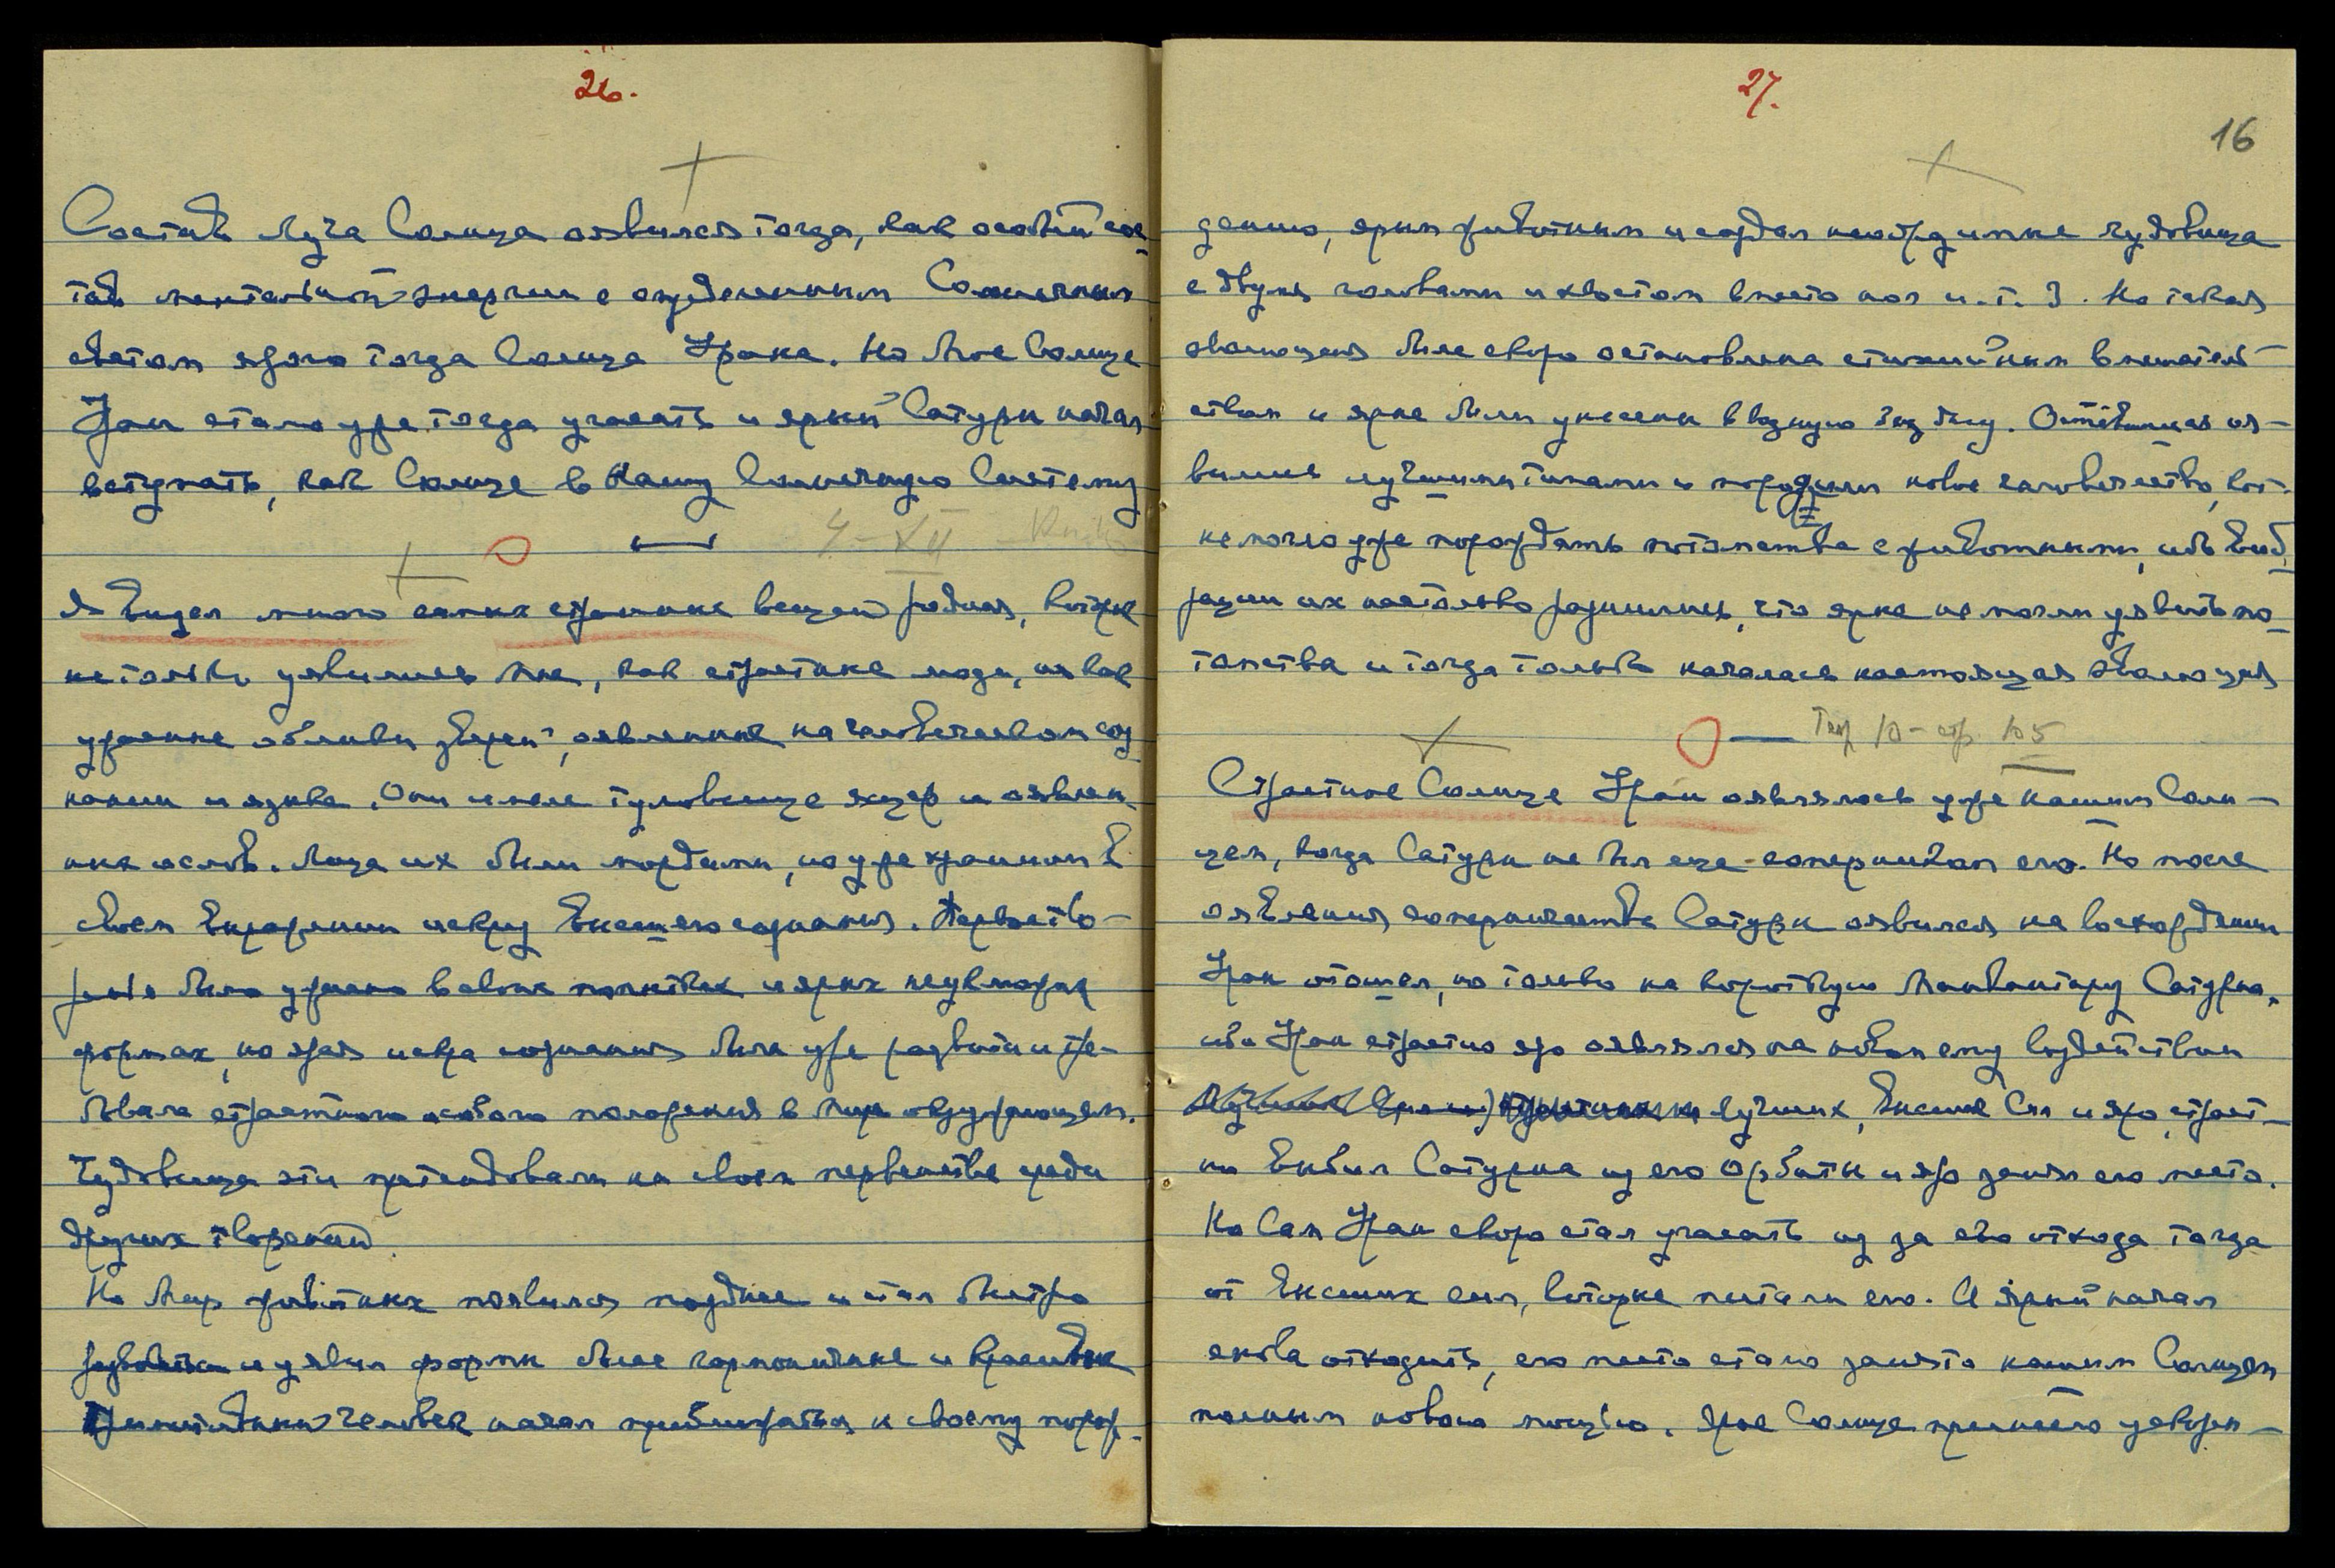 26.
Состав Луча Солнца явился тогда, как особый сос-
тав ментальной энергии с определенным Солнечным
светом ярого тогда Солнца Урана. Но Мое Солнце
Уран стало уже тогда угасать и ярый Сатурн начал
вступать, как Солнце в Нашу Солнечную Систему
4-XII
Я видел много самых странных вещей родная, которые
не только уявились мне, как страстные люди, но как
удивленные облики зверей, явленные на человеческом соз
нании и языке. Они имели туловище ящер и явлен-
ных ослов. Лица их были мордами, но уже хранили в
своем выражении искру высшего сознания. Первоство-
было в своих понятиях и ярых неуклюжих
формах, но ярая искра сознания была уже развита и тре-
бовала страстного особого положения в мире окружающем.
Чудовища эти претендовали на своем первенстве среди
других творений.
Но мир животных появился позднее и стал быстро
развиваться и уявил формы более гармоничные и красивые
Примитивный человек начал приближаться к своему порож-
27.
16
дению, ярым животным и создал неотрад чудовища
с двумя головами и хвостом вместо ног и.т.д. Но такая
эволюция была скоро остановлена стихийным вмешатель-
ством и ярые были унесены в водную бездну. Оставшиеся яв-
вились лучшими типами и породили новое человечество, кот.
не могло уже порождать потомства с животными, ибо виб
рации их настолько разнились, что ярые не могли уявить по-
томства и тогда только началась настоящая эволюция
Тетр 10 - стр. 105
Страстное Солнце Уран являлось уже нашим Солн-
цем, когда Сатурн не был еще соперником его. Но после
явления соперничества Сатурн явился на восхождении
Уран отошел, но только на короткую Манвантару Сатурна,
ибо Уран страстно яро явился на новом ему воздействии
лучших, Высших Сил и яро, страст-
но выбил Сатурна из его орбиты и яро занял его место.
Но Сам Уран скоро стал угасать из за его отхода тогда
от Высших сил, которые питали его. И ярый начал
снова отходить, его место стало занято нашим Солнцем
полным новою мощью. Ярое Солнце принесло ускорен-